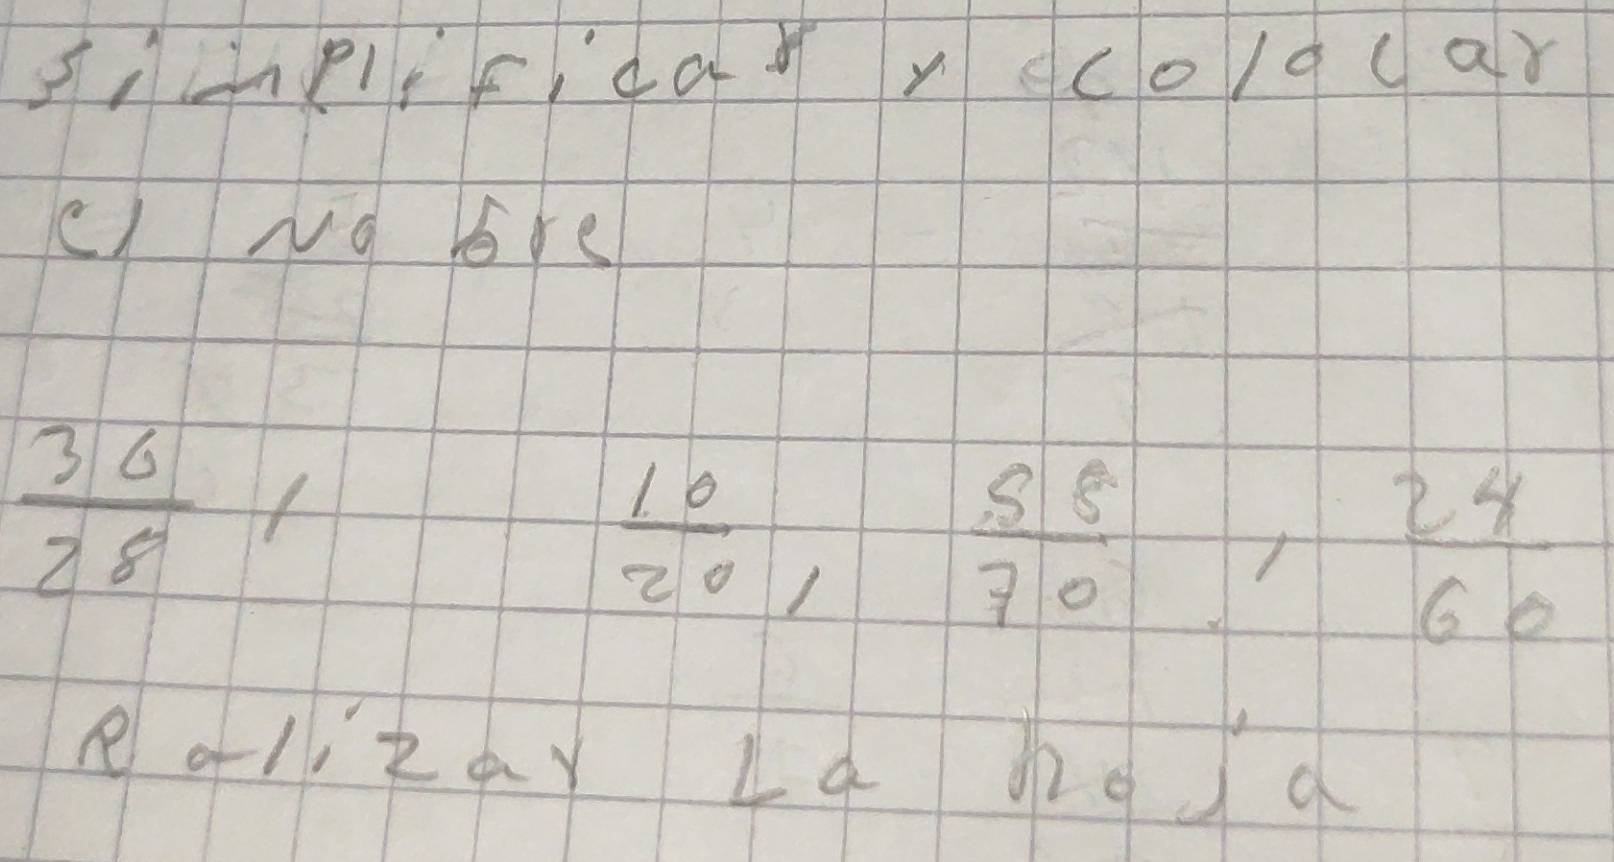 simplificar y colocar
el nobre
36/28, 10/20, 58/70, 24/60
Ralizar La hoja